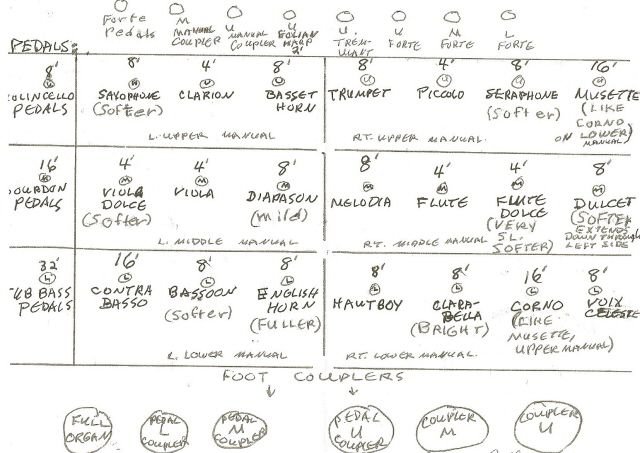 Forte Pedals
M MANUAL COUPLER
U MANUAL COUPLER
U EOLIAN HARP 2'
U. TREM-ULANT
U FORTE
M FORTE
L FORTE
PEDALS:
8' U OLINCELLO PEDALS
8' M SAXOPHONE (Softer)
4' U CLARION
8' U BASSET HORN
8' U TRUMPET
4' U PICCOLO
8' U SERAPHONE (Softer)
16' M MUSETTE (LIKE CORNO, ON LOWER MANUAL)
L. UPPER MANUAL
RT. UPPER MANUAL.
16' M OURDON PEDALS
4' M VIOLA DOLCE (Softer)
4' M VIOLA
8' M DIAPASON (mild)
8' M MELODIA
4' M FLUTE
4' M FLUTE DOLCE (VERY SL. SOFTER)
8' M DULCET (SOFTER EXTENDS DOWN THROUGH LEFT SIDE
L. MIDDLE MANUAL
RT. MIDDLE MANUAL
32' L UB BASS PEDALS
16' L CONTRA BASSO
8' L BASSOON (Softer)
8' L ENGLISH HORN (FULLER)
8' L HAUTBOY
8' L CLARA-BELLA (BRIGHT)
16' L CORNO (LIKE MUSETTE, UPPER MANUAL)
8' L VOIX CELESTE
L. LOWER MANUAL
RT. LOWER MANUAL.
FOOT COUPLERS
FULL ORGAN
PEDAL L COUPLER
PEDAL M COUPLER
PEDAL U COUPLER
COUPLER M
COUPLER U